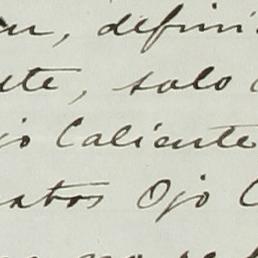 en, defini
te, solo
jo Caliente
atos Ojo C